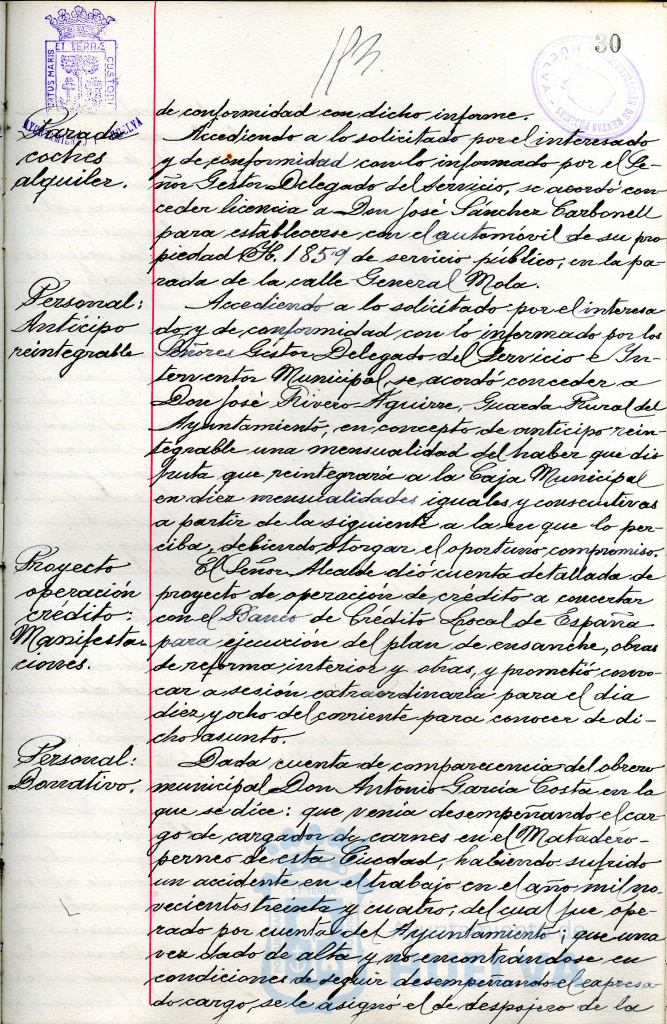 30
ET TERRÆ
PORTUS MARIS
CUSTODI
AYUNTAMIENTO HUELVA
ADMINISTRACION DE RENTAS PUBLICAS
HUELVA
Parada
coches
alquiler.
de conformidad con dicho informe.
Accediendo a lo solicitado por el interesado
y de conformidad con lo informado por el Se-
ñor Gestor Delegado del Servicio, se acordó con
ceder licencia a Don José Sánchez Carbonell
para establecerse con el automóvil de su pro
piedad H. 1859 de servicio público, en la pa-
rada de la calle General Mola.
Personal:
Anticipo
reintegrable
Accediendo a lo solicitado por el interesa
do, y de conformidad con lo informado por los
Señores Gestor Delegado del Servicio e In-
terventor Municipal, se acordó conceder a
Don José Rivero Aguirre, Guarda Rural del
Ayuntamiento, en concepto de anticipo rein-
tegrable una mensualidad del haber que dis
fruta que reintegrará a la Caja Municipal
en diez mensualidades iguales y consecutivas
a partir de la siguiente a la en que lo per-
ciba, debiendo otorgar el oportuno compromiso.
Proyecto
operación
crédito:
Manifesta-
ciones.
El Señor Alcalde dió cuenta detallada de
proyecto de operación de crédito a concertar
con el Banco de Crédito Local de España
para ejecución del plan de ensanche, obras
de reforma interior y otras, y prometió convo-
car a sesión extraordinaria para el dia
diez y ocho del corriente para conocer de di-
cho asunto.
Personal:
Donativo.
Dada cuenta de comparecencia del obrero
municipal Don Antonio García Costa en la
que se dice: que venía desempeñando el car-
go de cargador de carnes en el Matadero-
perneo de esta Ciudad, habiendo sufrido
un accidente en el trabajo en el año mil no
vecientos treinta y cuatro, del cual fue ope-
rado por cuenta del Ayuntamiento; que una
vez dado de alta y no encontrándose en
condiciones de seguir desempeñando el expresa-
do cargo, se le asignó el de despojero de la
HUELVA